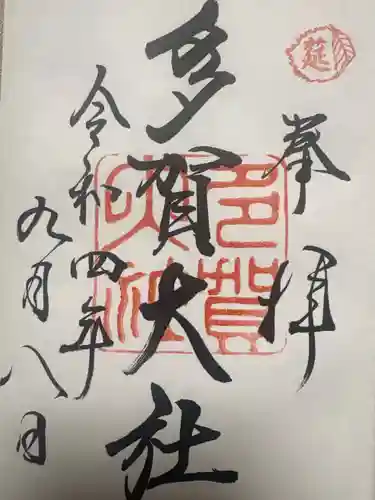 奉拝
多賀大社
令和四年
九月八日
莚
多賀大社